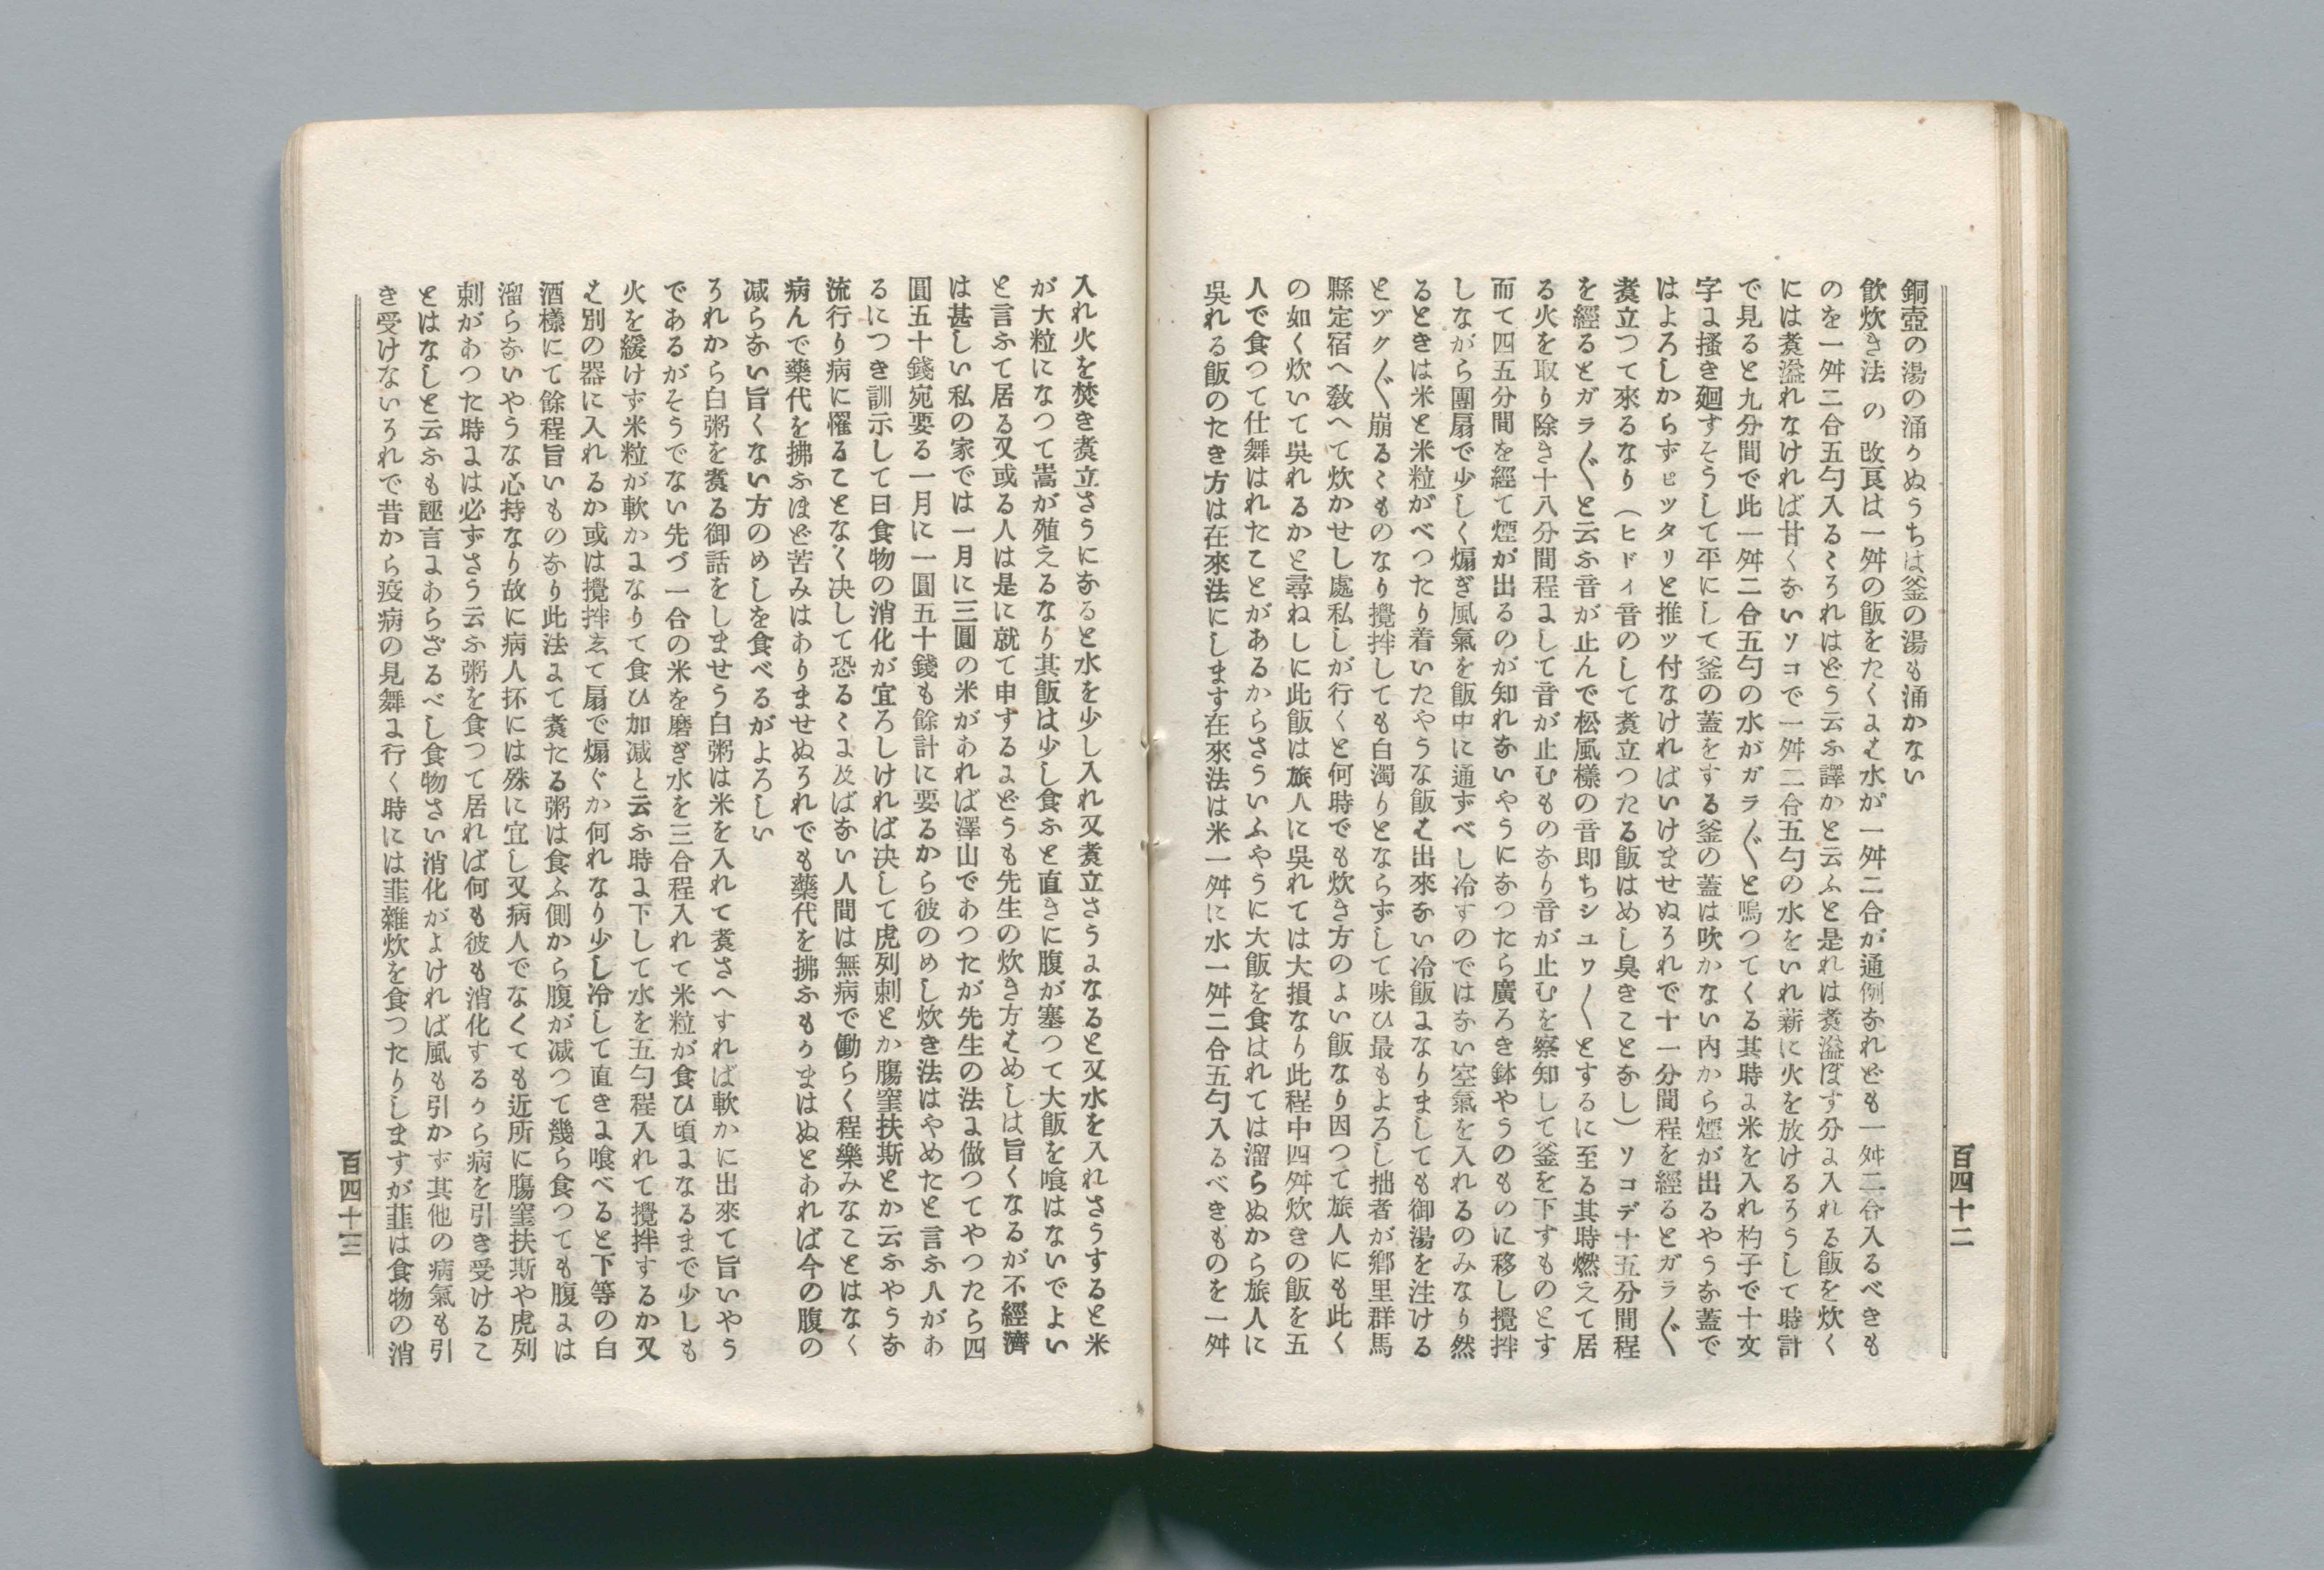 百四十二
銅壺の湯の涌かぬうちは釜の湯も涌かない
飮炊き法の改良は一舛の飯をたくには水が一舛二合が通例なれども一舛二合入るべきも
のを一舛二合五勺入るゝそれはどう云ふ譯かと云ふと是れは煑溢ぼす分に入れる飯を炊く
には煑溢れなければ甘くないソコで一舛二合五勺の水をいれ薪に火を放けるそうして時計
で見ると九分間で此一舛二合五勺の水がガラ〴〵と鳴つてくる其時に米を入れ杓子で十文
字に掻き廻すそうして平にして釜の蓋をする釜の蓋は吹かない内から煙が出るやうな蓋で
はよろしからずピツタリと推ツ付なければいけませぬそれで十一分間程を經るとガラ〴〵
煑立つて來るなり（ヒドイ音のして煑立つたる飯はめし臭きことなし）ソコデ十五分間程
を經るとガラ〴〵と云ふ音が止んで松風樣の音即ちシユワ〱とするに至る其時燃えて居
る火を取り除き十八分間程にして音が止むものなり音が止むを察知して釜を下すものとす
而て四五分間を經て煙が出るのが知れないやうになつたら廣ろき鉢やうのものに移し攪拌
しながら團扇で少しく煽ぎ風氣を飯中に通ずべし冷すのではない空氣を入れるのみなり然
るときは米と米粒がべつたり着いたやうな飯は出來ない冷飯になりましても御湯を注ける
とヅク〴〵崩るゝものなり攪拌しても白濁りとならずして味ひ最もよろし拙者が鄕里群馬
縣定宿へ敎へて炊かせし處私しが行くと何時でも炊き方のよい飯なり因つて旅人にも此く
の如く炊いて吳れるかと尋ねしに此飯は旅人に吳れては大損なり此程中四舛炊きの飯を五
人で食つて仕舞はれたことがあるからさういふやうに大飯を食はれては溜らぬから旅人に
吳れる飯のたき方は在來法にします在來法は米一舛に水一舛二合五勺入るべきものを一舛
入れ火を焚き煑立さうになると水を少し入れ又煑立さうになると又水を入れさうすると米
が大粒になつて嵩が殖えるなり其飯は少し食ふと直きに腹が塞つて大飯を喰はないでよい
と言ふて居る又或る人は是に就て申するにどうも先生の炊き方はめしは旨くなるが不經濟
は甚しい私の家では一月に三圓の米があれば澤山であつたが先生の法に倣つてやつたら四
圓五十錢宛要る一月に一圓五十錢も餘計に要るから彼のめし炊き法はやめたと言ふ人があ
るにつき訓示して曰食物の消化が宜ろしければ决して虎列刺とか膓窒扶斯とか云ふやうな
流行り病に罹ることなく决して恐るゝに及ばない人間は無病で働らく程樂みなことはなく
病んで藥代を拂ふほど苦みはありませぬそれでも藥代を拂ふもかまはぬとあれば今の腹の
減らない旨くない方のめしを食べるがよろしい
それから白粥を煑る御話をしませう白粥は米を入れて煑さへすれば軟かに出來て旨いやう
であるがそうでない先づ一合の米を磨ぎ水を三合程入れて米粒が食ひ頃になるまで少しも
火を緩けず米粒が軟かになりて食ひ加减と云ふ時に下して水を五勺程入れて攪拌するか又
は別の器に入れるか或は攪拌ゑて扇で煽ぐか何れなり少し冷して直きに喰べると下等の白
酒樣にて餘程旨いものなり此法にて煑たる粥は食ふ側から腹が减つて幾ら食つても腹には
溜らないやうな心持なり故に病人抔には殊に宜し又病人でなくても近所に膓窒扶斯や虎列
刺があつた時には必ずさう云ふ粥を食つて居れば何も彼も消化するから病を引き受けるこ
とはなしと云ふも誣言にあらざるべし食物さい消化がよければ風も引かず其他の病氣も引
き受けないそれで昔から疫病の見舞に行く時には韮雜炊を食つたりしますが韮は食物の消
百四十三